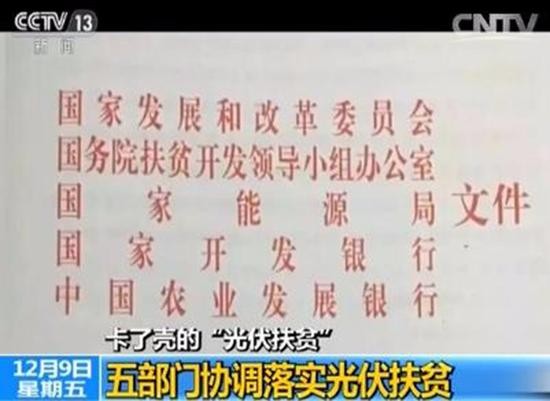 CCTV 13
新闻
CNTV
国家发展和改革委员会
国务院扶贫开发领导小组办公室
国家能源局 文件
国家开发银行
中国农业发展银行
卡了壳的“光伏扶贫”
12月9日
星期五
五部门协调落实光伏扶贫